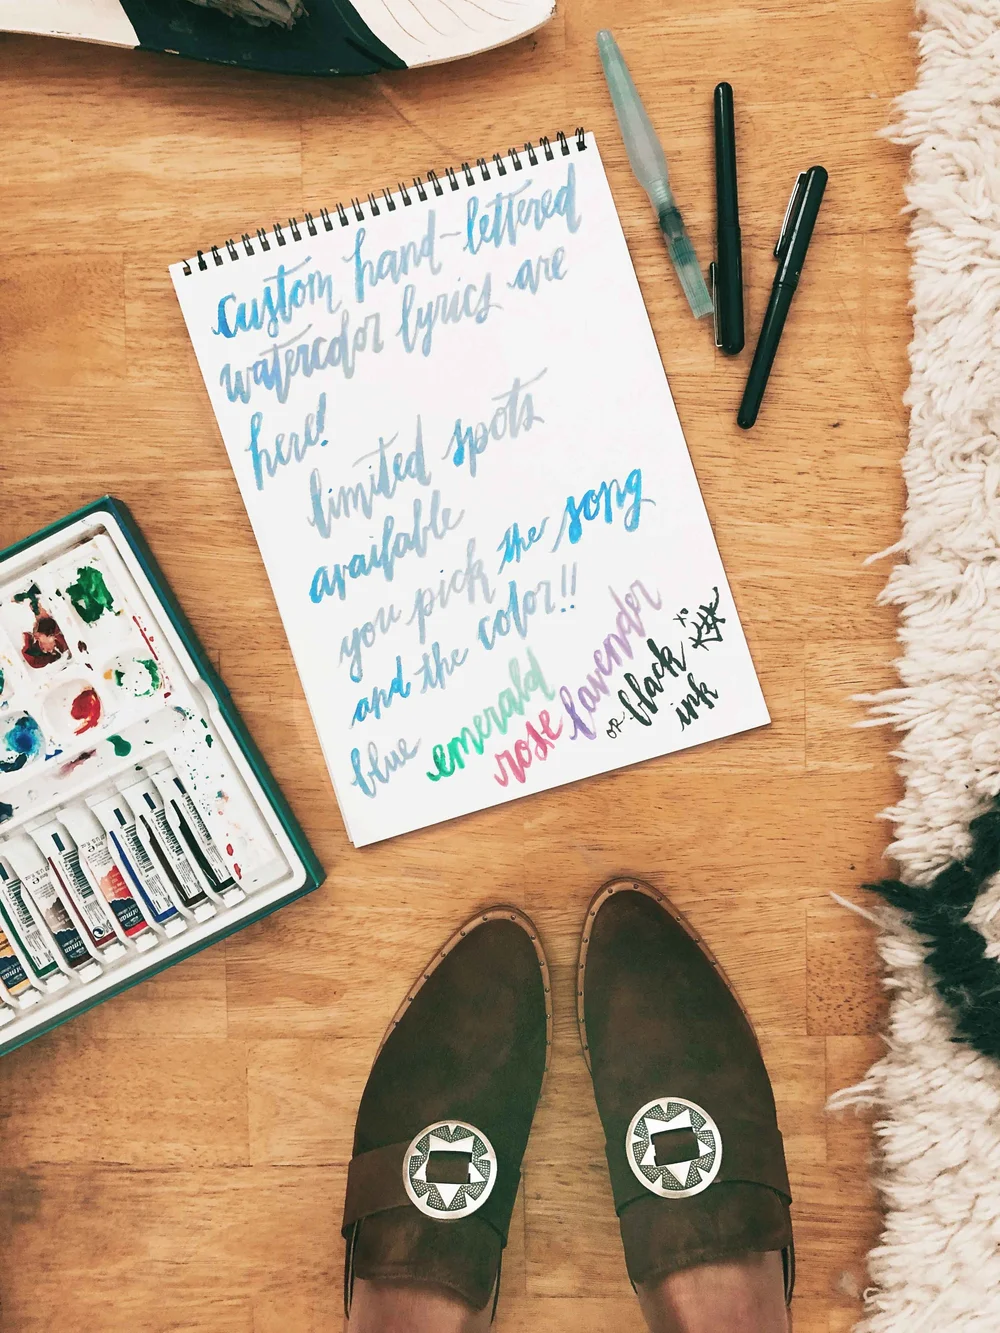 Custom hand-lettered
watercolor lyrics are
here!
limited spots
available
you pick the song
and the color!!
blue emerald
rose lavender
or black
ink
xo